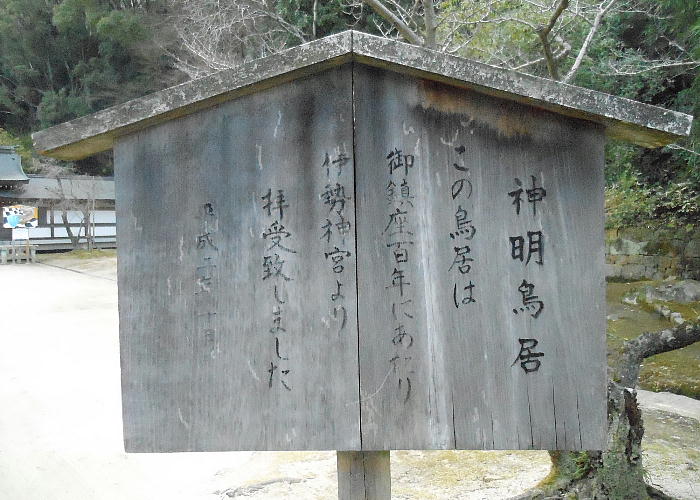 神明鳥居
この鳥居は
御鎮座百年にあたり
伊勢神宮より
拝受致しました
平成二 月